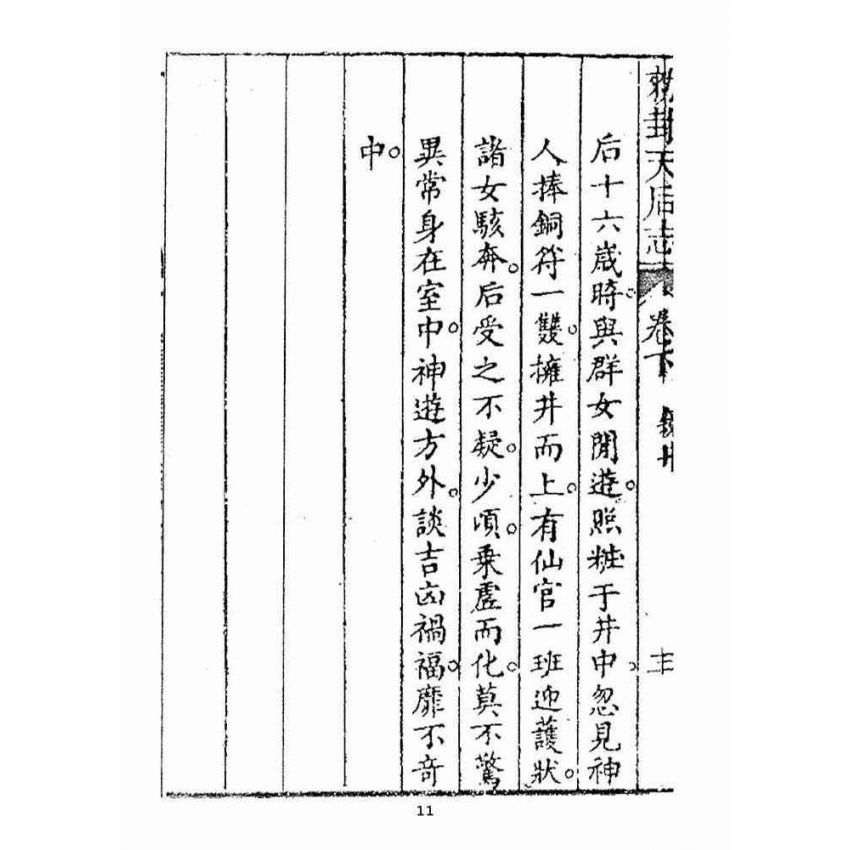 勅封天后志 卷下
后十六歲時。與群女閒遊。照粧于井中。忽見神
人捧銅符一雙。擁井而上。有仙官一班迎護狀。
諸女駭奔。后受之不疑。少頃。乗虛而化。莫不驚
異常身在室中。神遊方外。談吉凶禍福。靡不奇
中。
11